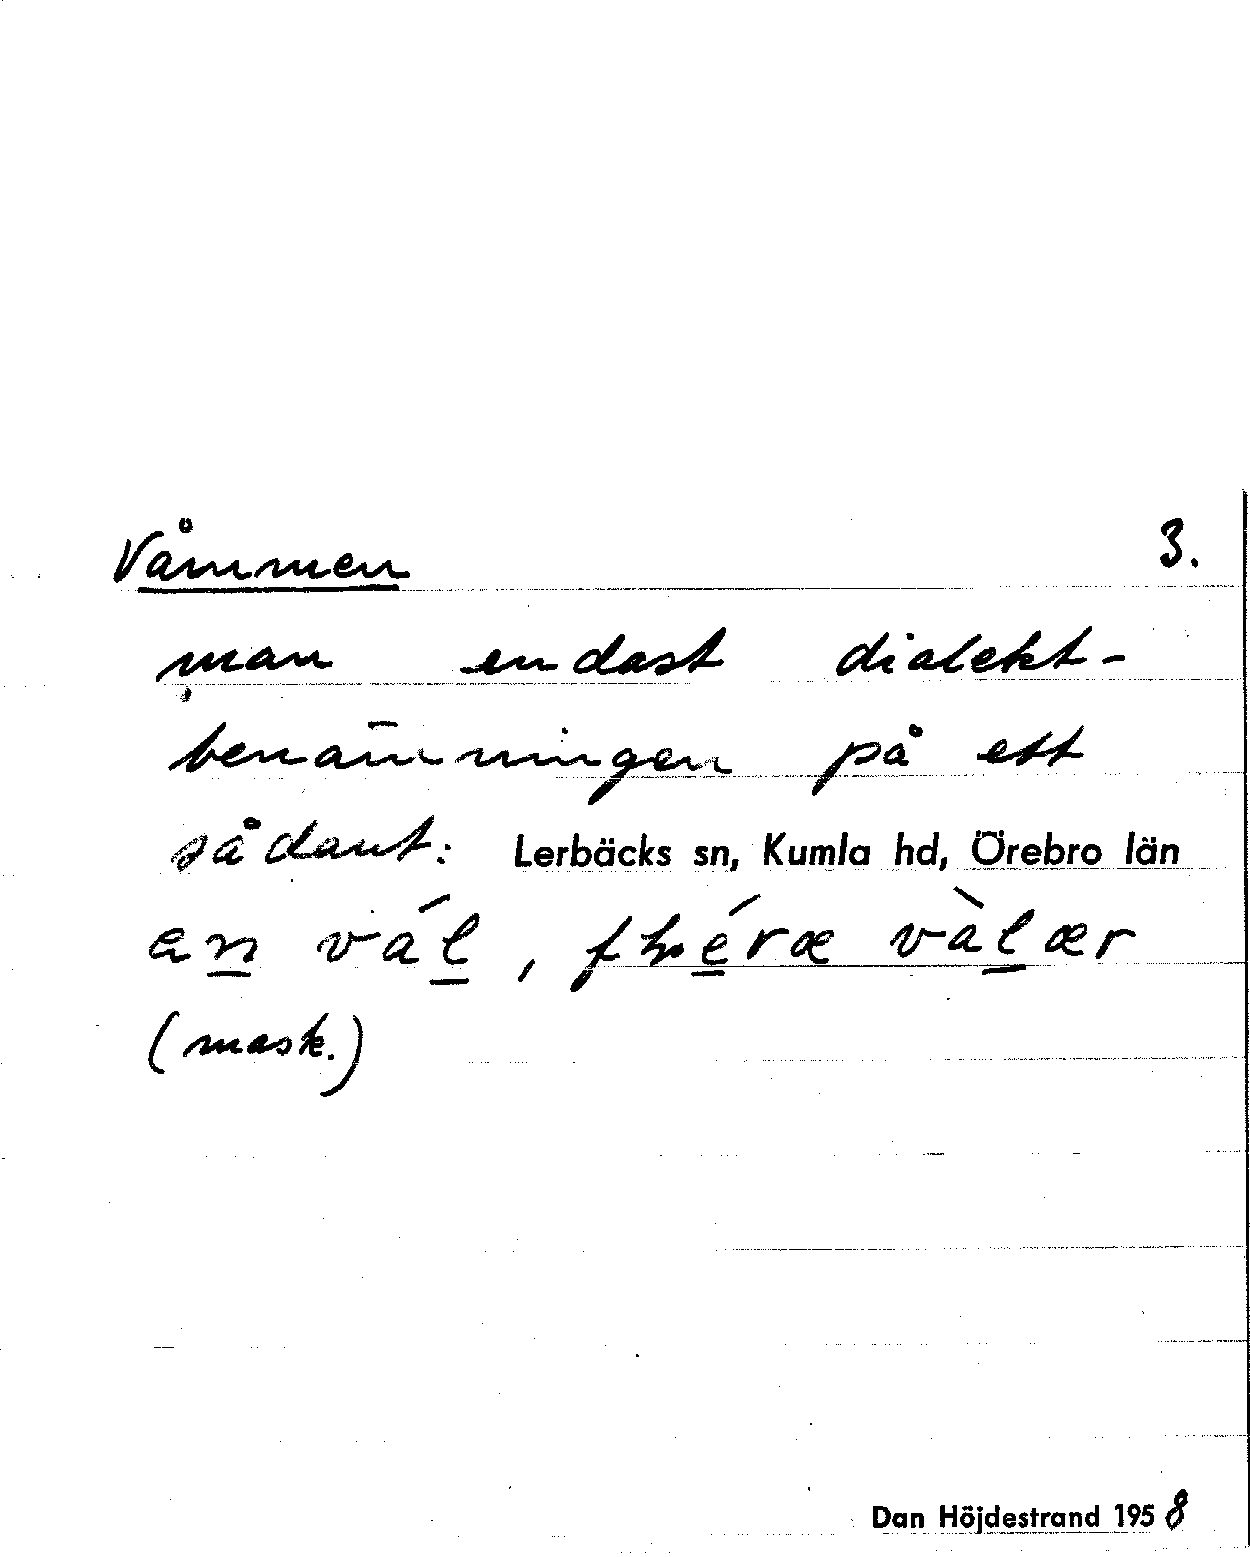 Våmmen 3.
man endast dialekt-
benämningen på ett
sådant: Lerbäcks sn, Kumla hd, Örebro län
en vál, fléræ vàlær
(mask.)
Dan Höjdestrand 1958